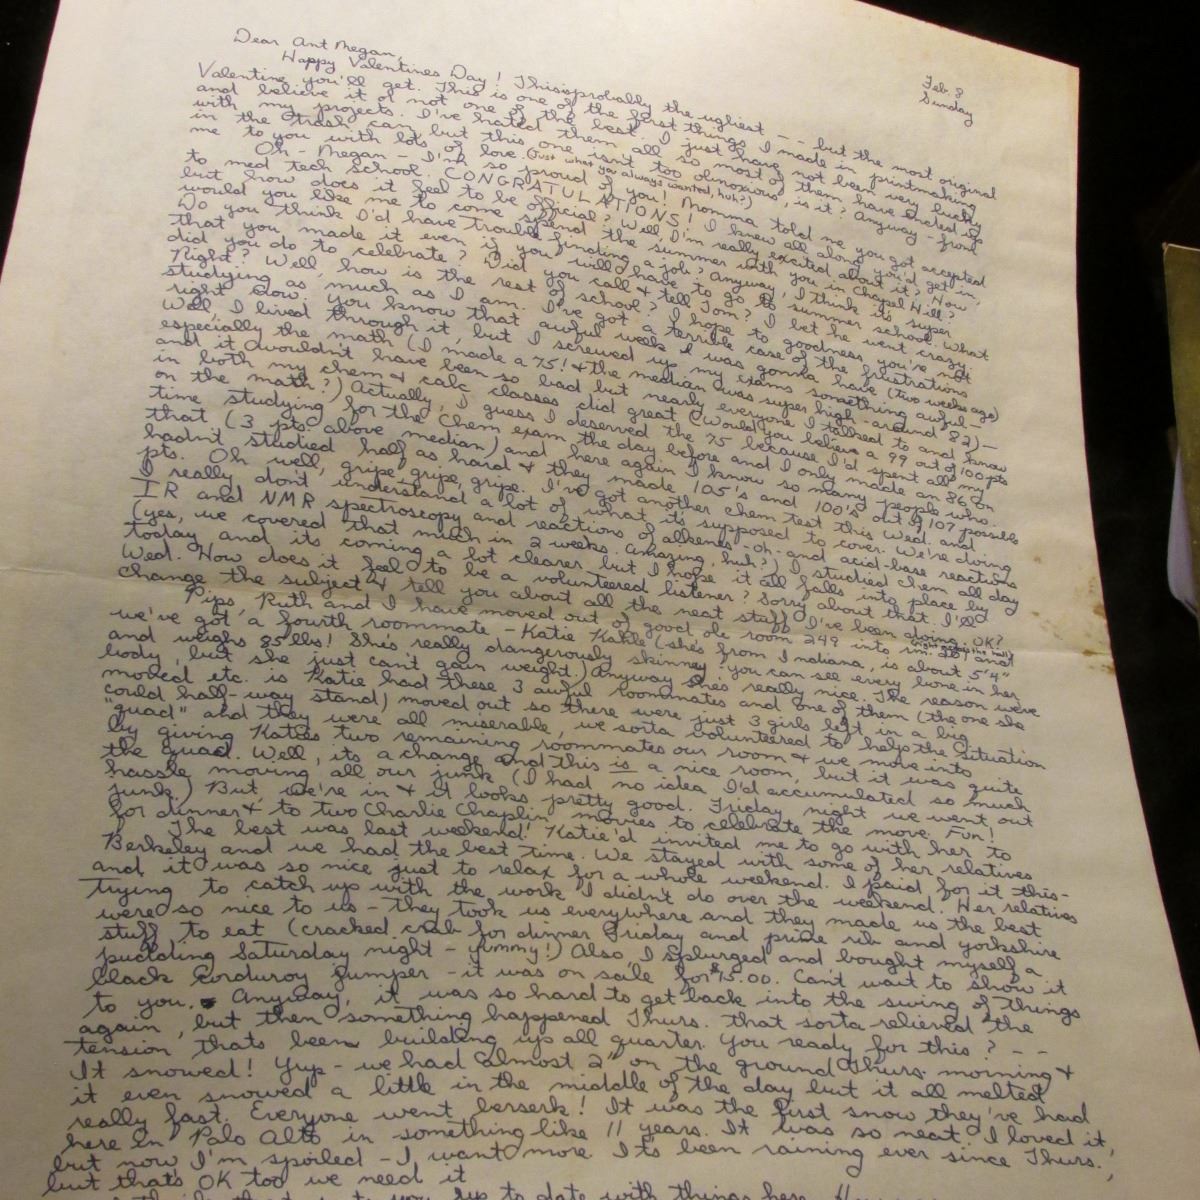 Feb. 8
Sunday
Dear Ant Megan,
Happy Valentines Day! This is probably the ugliest -- but the most original
Valentine you'll get. This is one of the first things I made in printmaking
and believe it or not one of the best. I just have not been very lucky
with my projects. I've hated them all so most of them have ended up
in the trash can, but this one isn't too obnoxious, is it? Anyway - from
me to you with lots of love. (Just what you always wanted, huh?)
Oh - Megan - I'm so proud of you! Momma told me you got accepted
to med tech school. CONGRATULATIONS! I knew all along you'd get in,
but how does it feel to be official? Well, I'm really excited about it! Now,
would you like me to come spend the summer with you in Chapel Hill?
Do you think I'd have trouble finding a job? Anyway, I think its super
that you made it even if you will have to go to summer school. What
did you do to celebrate? Did you call & tell Tom? I bet he went crazy.
Right? Well, how is the rest of school? I hope to goodness you're not
studying as much as I am. I've got a terrible case of the frustrations
right now. You know that awful week I was gonna have (two weeks ago)
Well, I lived through it, but I screwed up my exams something awful -
especially the math (I made a 75! & the median was super high - around 82) -
and it wouldn't have been so bad but nearly everyone I talked to and know
in both my chem & calc classes did great (Would you believe a 99 out of 100 pts
on the math?) Actually, I guess I deserved the 75 because I'd spent all my
time studying for the Chem exam the day before and I only made an 86 on
that (3 pts. above median) and here again I know so many people who
hadn't studied half as hard & they made 105's and 100's out of 107 possible
pts. Oh well, gripe, gripe, gripe. I've got another chem test this Wed. and
I really don't understand a lot of what its supposed to cover. We're doing
IR and NMR spectroscopy and reactions of alkenes - oh - and acid-base reactions
(yes, we covered that much in 2 weeks. Amazing, huh?) I studied chem all day
today and its coming a lot clearer but I hope it all falls into place by
Wed. How does it feel to be a volunteered listener? Sorry about that. I'll
change the subject & tell you about all the neat stuff I've been doing. OK?
Pips, Ruth and I have moved out of good ole room 249 into rm. (right across the hall) and
we've got a fourth roommate - Katie Kahle (she's from Indiana, is about 5'4"
and weighs 85 lbs! She's really dangerously skinny - you can see every bone in her
body, but she just can't gain weight.) Anyway she's really nice. The reason we've
moved etc. is Katie had these 3 awful roommates and one of them (the one she
could half-way stand) moved out so there were just 3 girls left in a big
"quad" and they were all miserable, we sorta volunteered to help the situation
by giving Katies two remaining roommates our room & we move into
the quad. Well, its a change and this is a nice room, but it was quite
hassle moving all our junk (I had no idea I'd accumulated so much
junk) But, we're in & it looks pretty good. Friday night we went out
for dinner & to two Charlie Chaplin movies to celebrate the move. Fun!
The best was last weekend! Katie'd invited me to go with her to
Berkeley and we had the best time. We stayed with some of her relatives
and it was so nice just to relax for a whole weekend. I paid for it this-
trying to catch up with the work I didn't do over the weekend. Her relatives
were so nice to us - they took us everywhere and they made us the best
stuff to eat (cracked crab for dinner Friday and prime rib and yorkshire
pudding Saturday night - yummy!) Also, I splurged and bought myself a
black corduroy jumper - it was on sale for $15.00. Can't wait to show it
to you. Anyway, it was so hard to get back into the swing of things
again, but then something happened Thurs. that sorta relieved the
tension thats been building up all quarter. You ready for this? --
It snowed! Yup - we had almost 2" on the ground Thurs. morning &
it even snowed a little in the middle of the day but it all melted
really fast. Everyone went berserk! It was the first snow they've had
here in Palo Alto in something like 11 years. It was so neat. I loved it,
but now I'm spoiled - I want more. Its been raining ever since Thurs.,
but thats OK too we need it
to you up to date with things here.